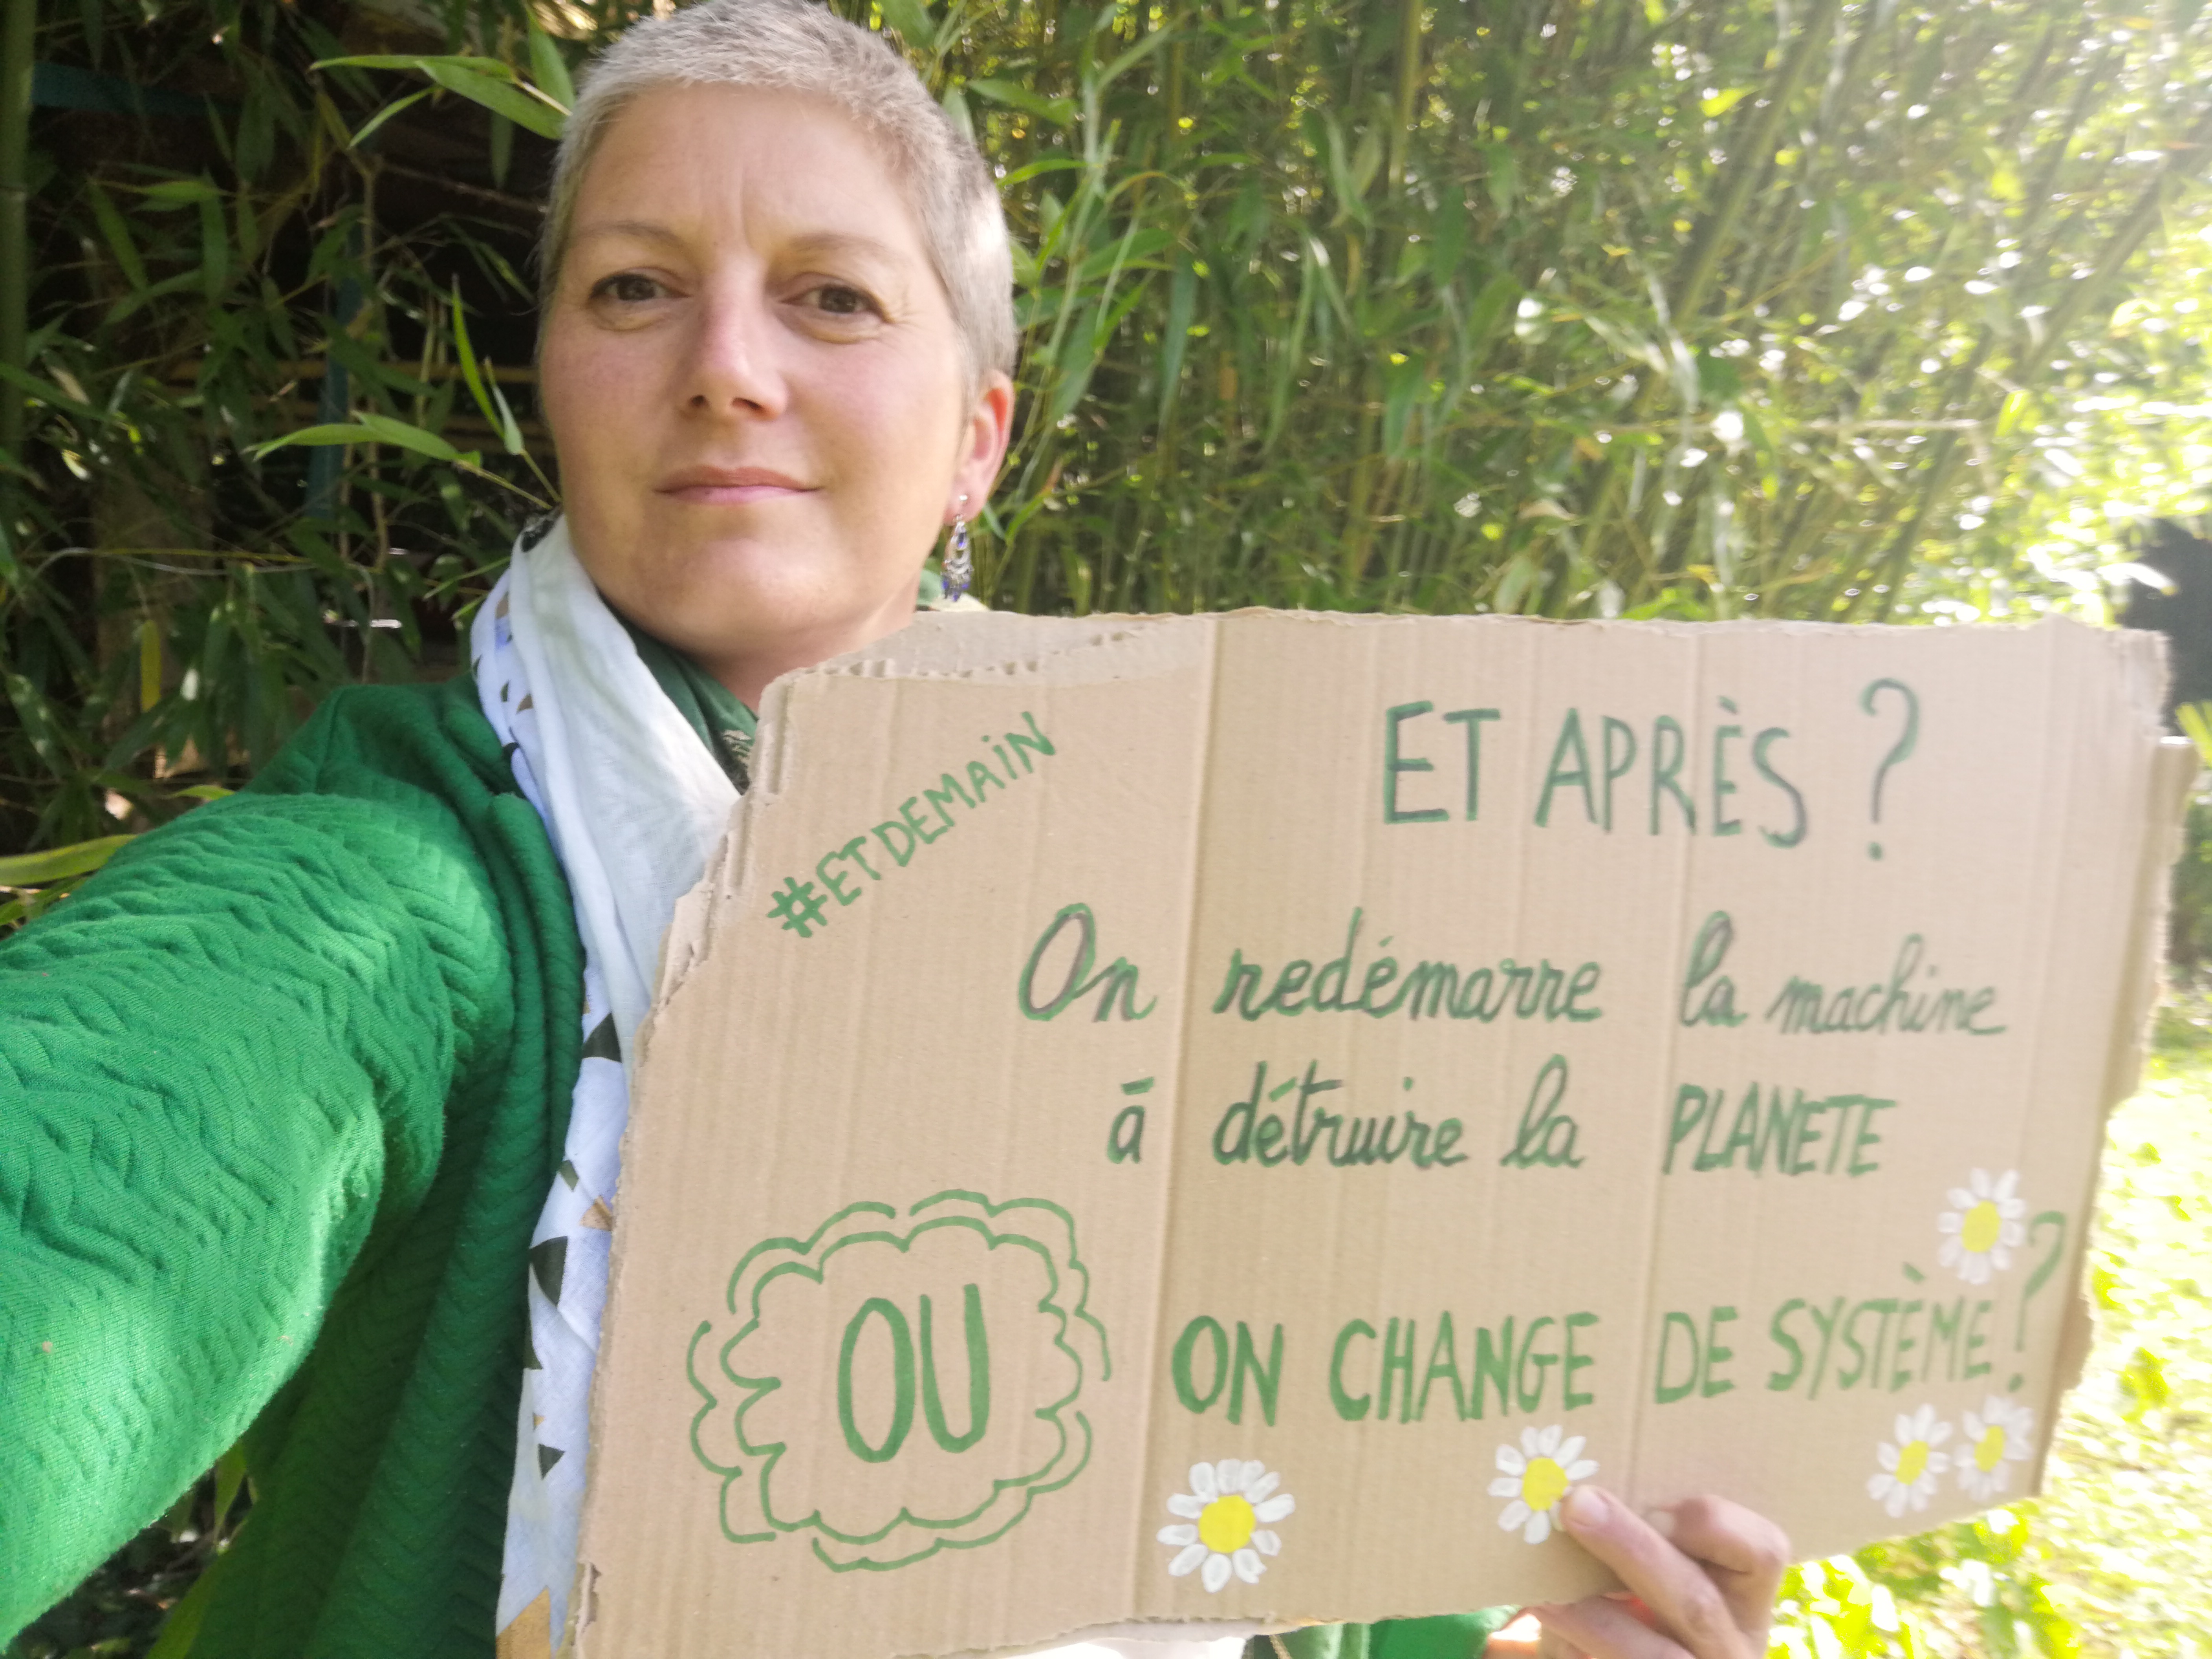 #ETDEMAIN
ET APRÈS ?
On redémarre la machine
à détruire la PLANETE
OU ON CHANGE DE SYSTÈME ?